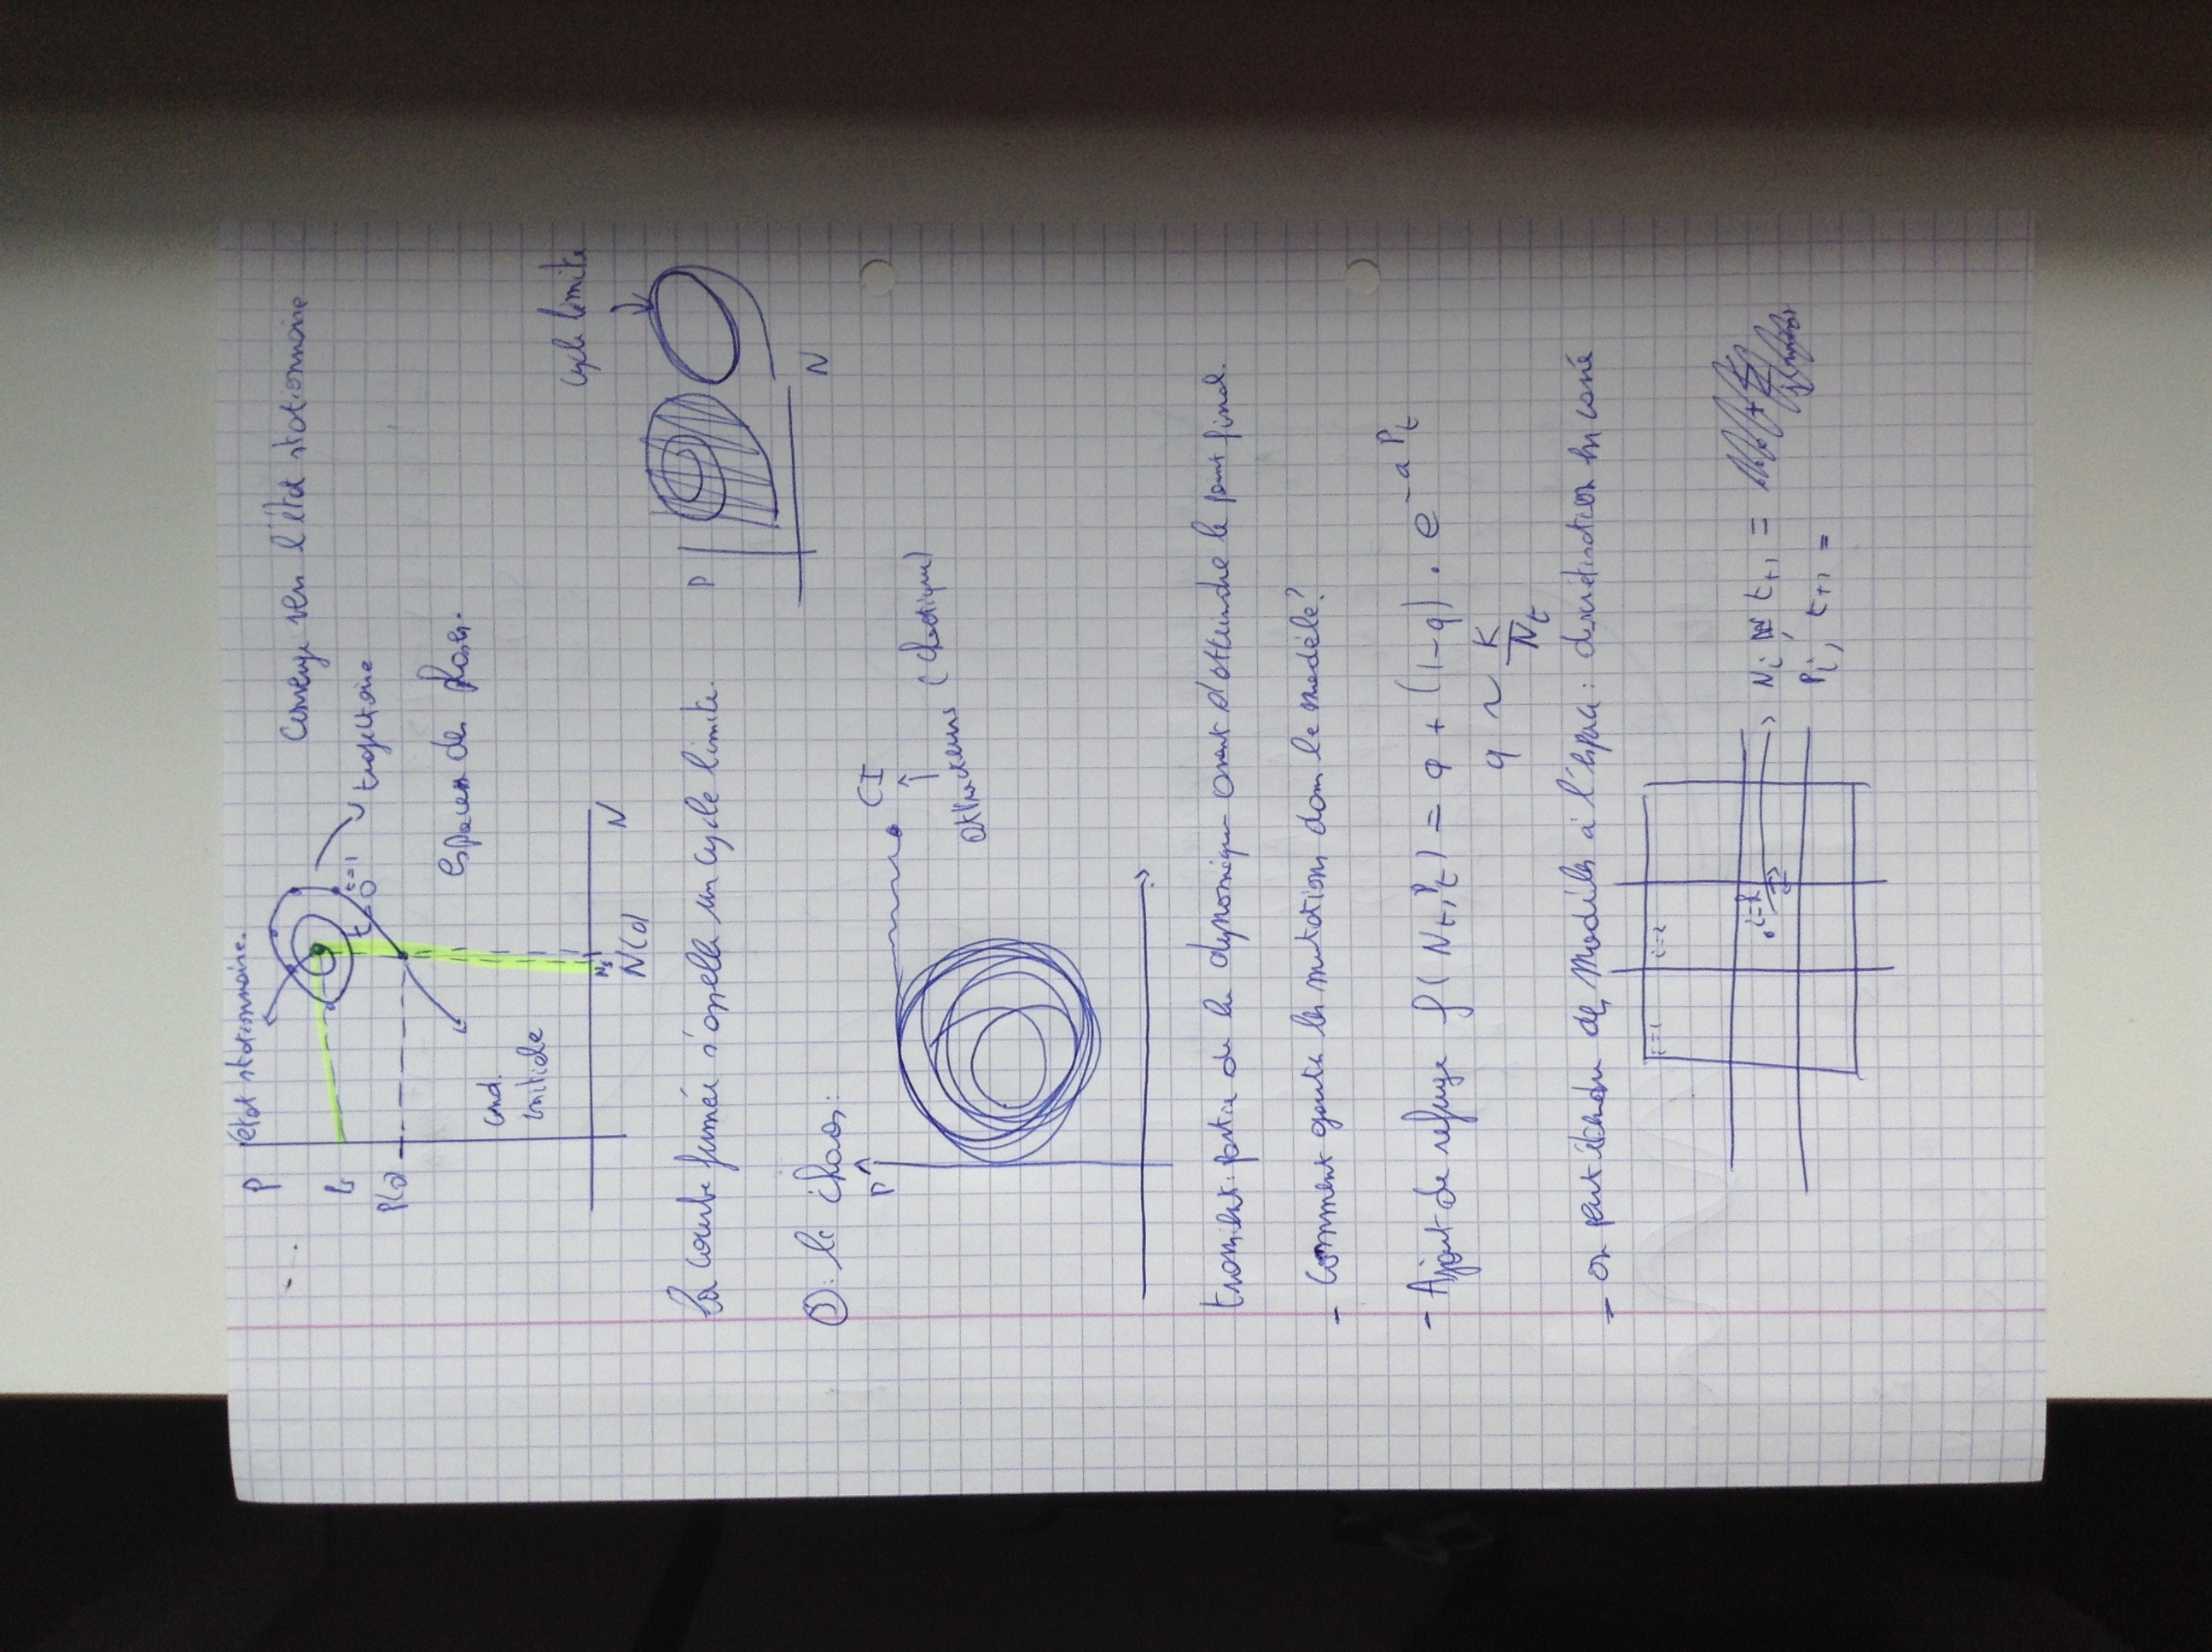 P
l'état stationnaire.
Converge vers l'état stationnaire
P(0)
t=1
trajectoire
cond.
initiale
Espace des phases.
N(0)
N
cycle limite
P
N
La courbe fermée s'appelle un cycle limite.
le chaos:
P
CI
attracteurs (chaotique)
transient: partie de la dynamique avant d'atteindre le point final.
- Comment garder les mutations dans le modèle?
- Ajout de refuge f(Nt, Pt) = q + (1-q) . e^-aPt
q ~ K/Nt
- on peut étendre des modèles à l'espace: discrétisation en carré
i=1
i=2
i=k
Ni, t+1 =
Pi, t+1 =